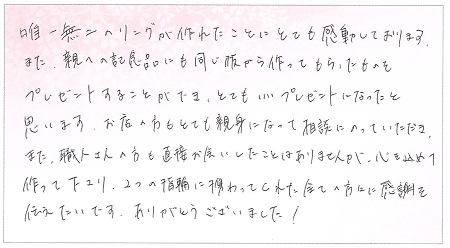 唯一無二のリングが作れたことにとても感動しております。
また、親への記念品にも同じ版から作ってもらったものを
プレゼントすることができ、とてもいいプレゼントになったと
思います。お店の方もとても親身になって相談にのっていただき、
また、職人さんの方も直接お会いしたことはありませんが、心を込めて
作って下さり、2つの指輪に携わってくれた全ての方々に感謝を
伝えたいです。ありがとうございました！